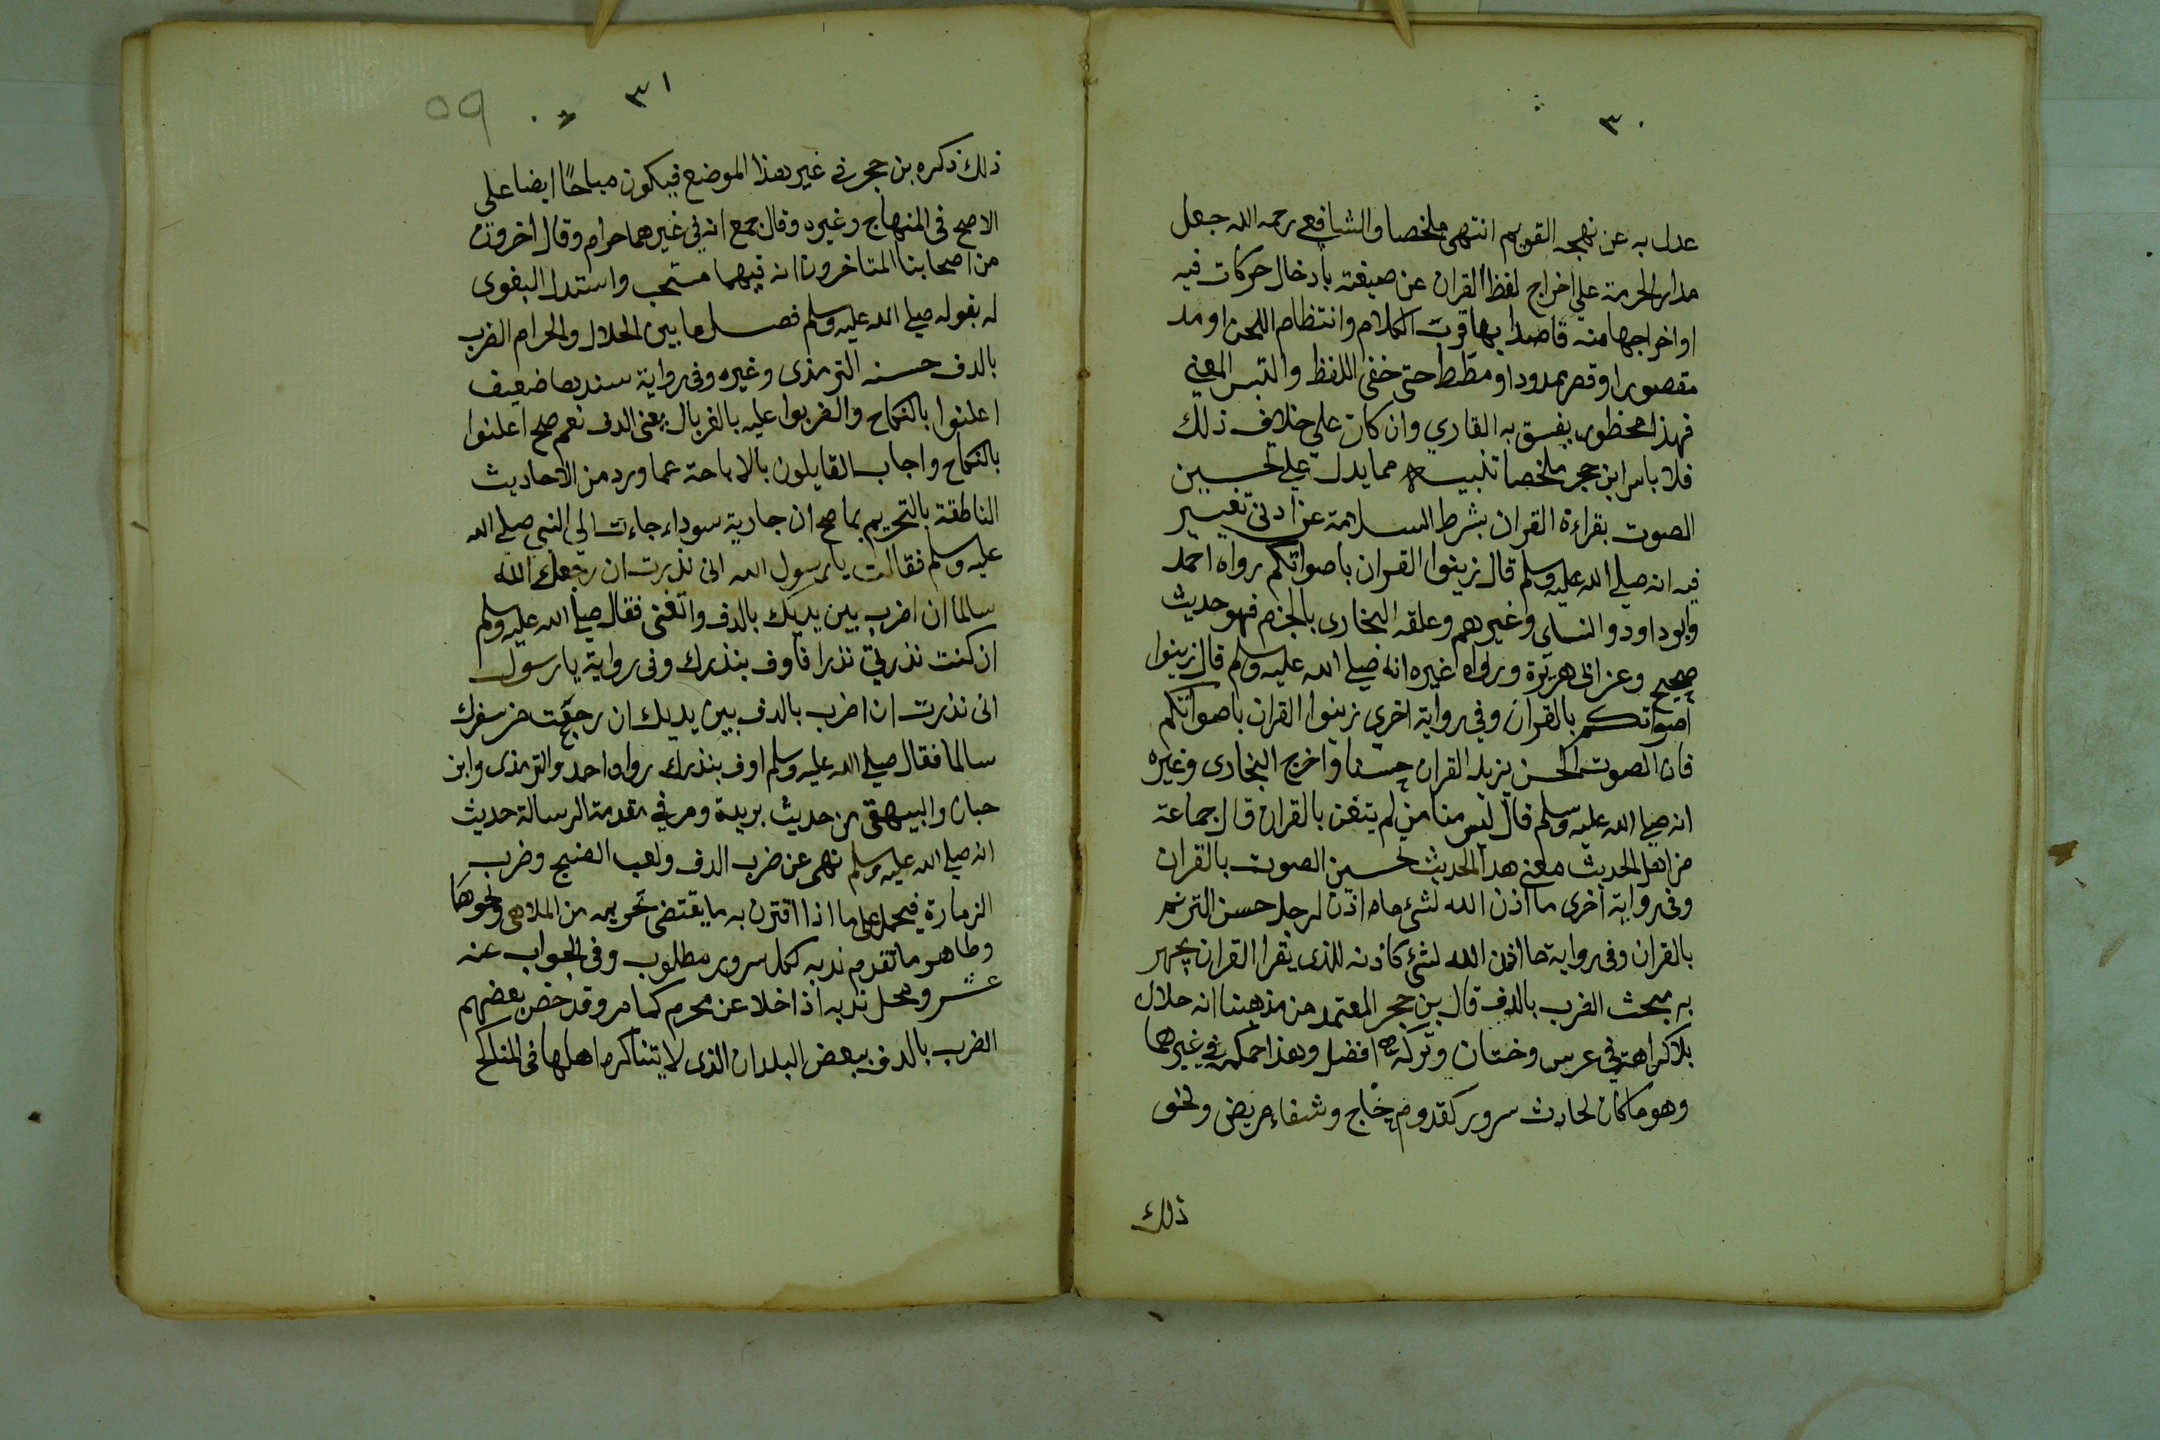 ٣٠
عدل به عن نهجه القويم انتهى ملخصا والشافعي رحمه الله جعل
مدار الحرمة علي اخراج لفظ القران عن صيغته بادخال حركات فيه
او اخراجها منه قاصدا بها قرب الكلام وانتظام اللحن او مد
مقصورا وقصر ممدود او مطط حتي خفي اللفظ والتبس المعني
فهذا محظور يفسق به القاري وان كان علي خلاف ذلك
فلا باس ابن حجر ملخصا تنبيه مما يدل علي تحسين
الصوت بقراءة القران بشرط السلامة عن ادنى تغيير
فيه انه صلي الله عليه وسلم قال زينوا القران باصواتكم رواه احمد
وابو داود والنساى وغيرهم وعلقه البخارى بالجزم فهو حديث
صحيح وعن ابي هريرة ورواه غيره انه صلي الله عليه وسلم قال زينوا
اصواتكم بالقران وفي رواية اخري زينوا القران باصواتكم
فان الصوت الحسن يزيد القران حسنا واخرج البخارى وغيره
انه صلي الله عليه وسلم قال ليس منا من لم يتغن بالقران قال جماعة
من اهل الحديث معني هذا الحديث تحسين الصوت بالقران
وفي رواية اخرى ما اذن الله لشئ ما اذن لرجل حسن الترنم
بالقران وفي رواية ما اذن الله لشئ كاذنه للذى يقرا القران يجهر
به مبحث الضرب بالدف قال بن حجر المعتمد من مذهبنا انه حلال
بلا كراهة في عرس وختان وتركه افضل وهذا حكمه في غيرهما
وهو ما كان لحادث سرور كقدوم حاج وشفاء مريض ونحو
ذلك
٣١
59
ذلك ذكره بن حجر في غير هذا الموضع فيكون مباحًا ايضا على
الاصح فى المنهاج وغيره وقال جمع انه في غيرهما حرام وقال اخرون
من اصحابنا المتاخرون انه فيهما مستحب واستدل البغوى
له بقوله صلي الله عليه وسلم فصل ما بين الحلال والحرام الضرب
بالدف حسنه الترمذى وغيره وفى رواية سندها ضعيف
اعلنوا بالنكاح واضربوا عليه بالغربال يعنى الدف نعم صح اعلنوا
بالنكاح واجاب القايلون بالاباحة عما ورد من الاحاديث
الناطقة بالتحريم بما صح ان جارية سوداء جاءت الي النبي صلي الله
عليه وسلم فقالت يا رسول الله انى نذرت ان رجعك الله
سالما ان اضرب بين يديك بالدف واتغنى فقال صلي الله عليه وسلم
ان كنت نذرتي نذرا فاوف بنذرك وفى رواية يا رسول
انى نذرت ان اضرب بالدف بين يديك ان رجعت من سفرك
سالما فقال صلي الله عليه وسلم اوف بنذرك رواه احمد والترمذى وابن
حبان والبيهقى من حديث بريدة ومر في مقدمة الرسالة حديث
انه صلي الله عليه وسلم نهى عن ضرب الدف ولعب الصنج وضرب
الزمارة فيحمل على ما اذا اقترن به ما يقتضى تحريمه من الملاهى ونحوها
وظاهر ما تقدم ندبه لكل سرور مطلوب وفى الجواب عنه
عسر ومحل ندبه اذا خلا عن محرم كما مر وقد خص بعضهم
الضرب بالدف ببعض البلدان الذى لا يتناكره اهلها فى المناكح